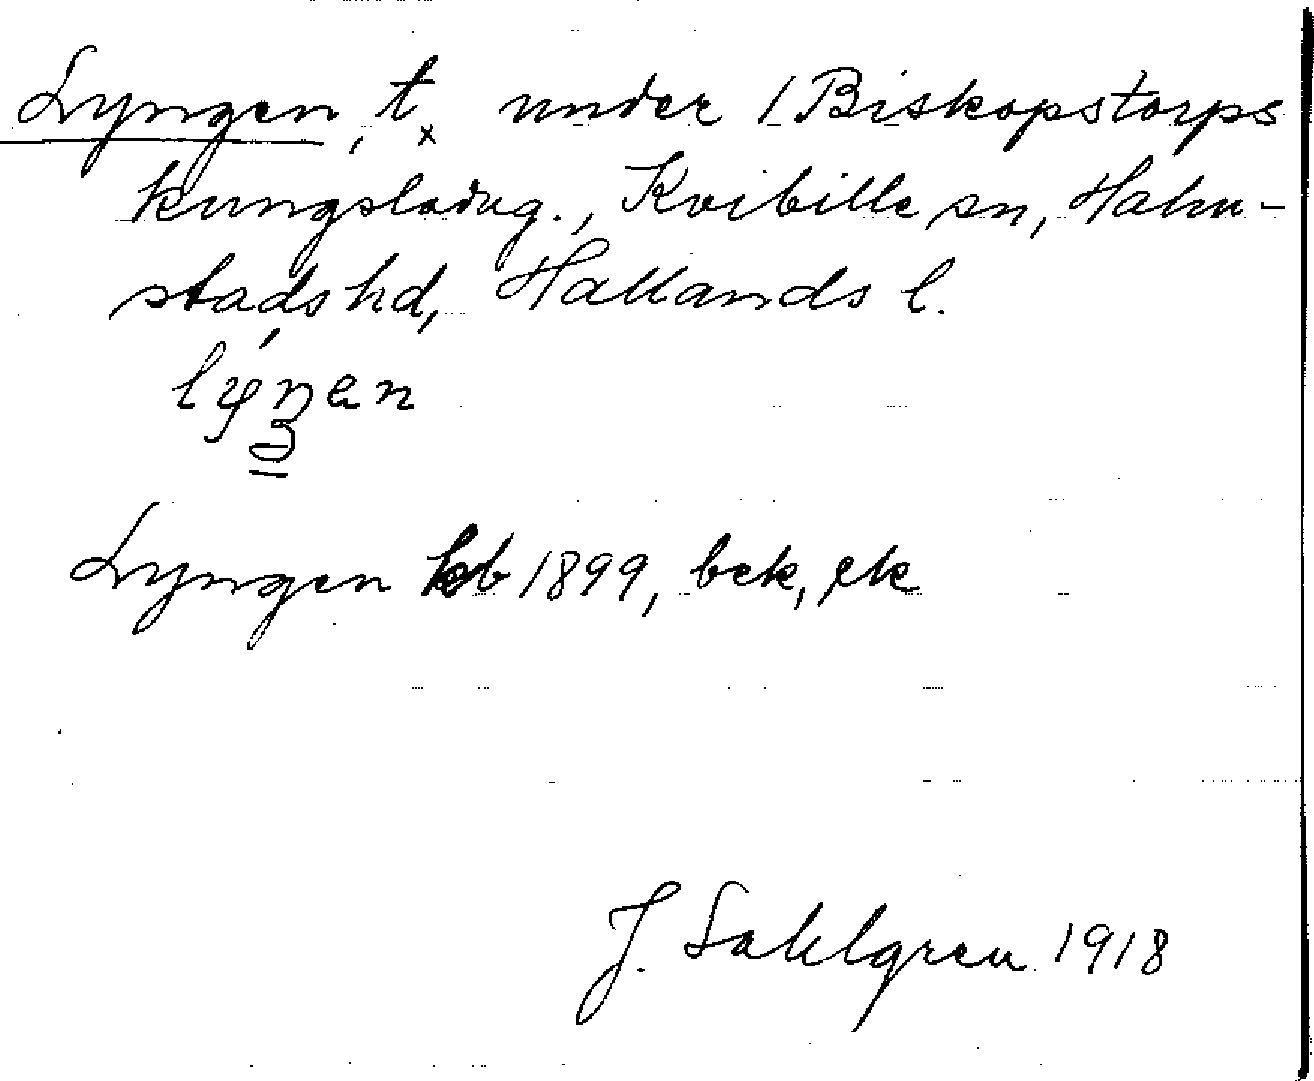 Lyngen, t. x under 1 Biskopstorps
kungsladug., Kvibille sn, Halm-
stads hd, Hallands l.
Lyngen kb 1899, bek, ek
J. Sahlgren 1918